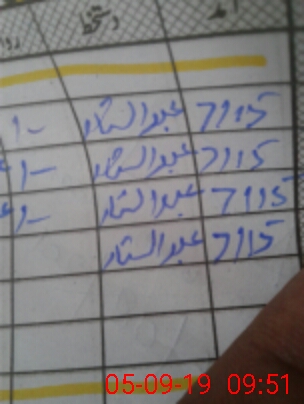 آمد دستخط
7115 عبدالستار
7115 عبدالستار
7115 عبدالستار
7115 عبدالستار
05-09-19 09:51